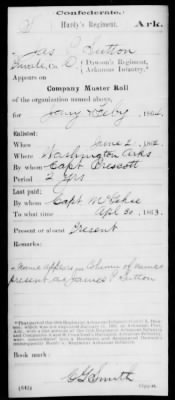 Confederate.
H | Hardy's Regiment, | Ark.
Jas P Sutton
Private, Co. D { Dawson's Regiment,
Arkansas Infantry.*
Appears on
Company Muster Roll
of the organization named above,
for Jany & Feby, 1864.
Enlisted:
When June 2, 1862.
Where Washington Arks
By whom Capt Prescott
Period 2 yrs
Last paid:
By whom Capt McGehee
To what time Apl 30, 1863.
Present or absent Present
Remarks:
Name appears in Column of names
present as James P Sutton
Book mark:
C G Smith
(642) Copyist.